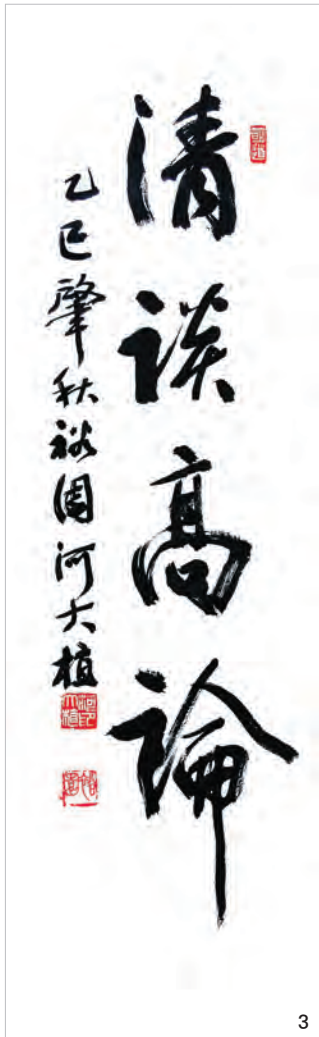 清談高論
乙巳肇秋裕河大植
3